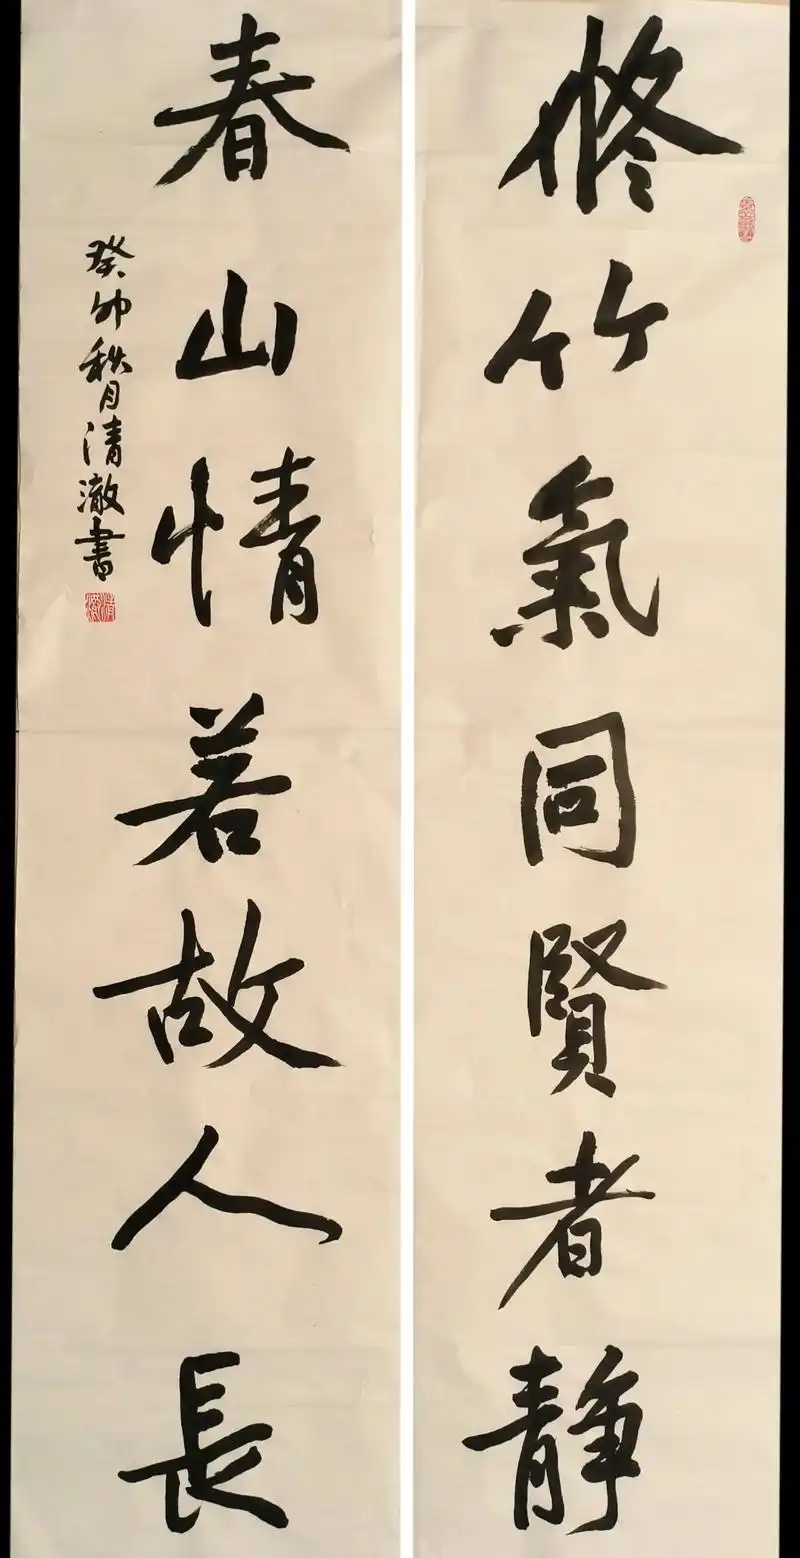 脩竹氣同賢者静
春山情若故人長
癸卯秋月清澈書